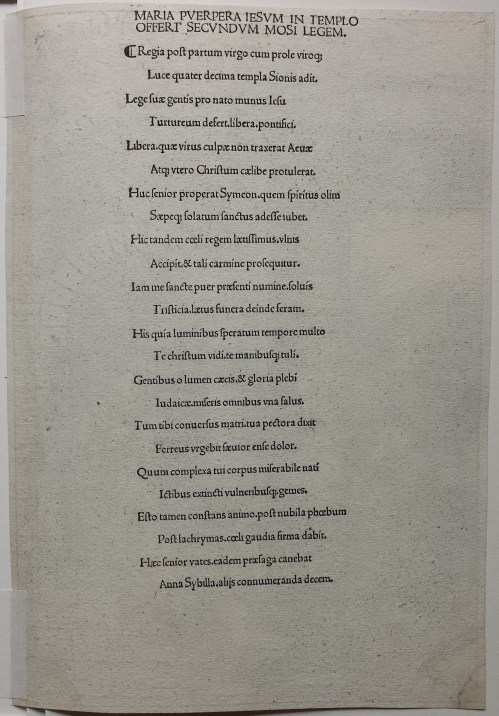 MARIA PVERPERA IESVM IN TEMPLO
OFFERT SECVNDVM MOSI LEGEM.
☾ Regia post partum virgo cum prole viroq;
Luce quater decima templa Sionis adit.
Lege suæ gentis pro nato munus Iesu
Turtureum defert.libera.pontifici.
Libera.quæ virus culpæ non traxerat Aeuæ
Atq; vtero Christum cælibe protulerat.
Huc senior properat Symeon.quem spiritus olim
Sæpeq; solatum sanctus adesse iubet.
Hic tandem cœli regem lætissimus.vlnis
Accipit.& tali carmine prosequitur.
Iam me sancte puer præsenti numine.soluis
Tristicia.lætus funera deinde feram.
His quia luminibus speratum tempore multo
Te christum vidi.te manibusq; tuli.
Gentibus o lumen cæcis.& gloria plebi
Iudaicæ.miseris omnibus vna salus.
Tum tibi conuersus matri.tua pectora dixit
Ferreus vrgebit sæuior ense dolor.
Quum complexa tui corpus miserabile nati
Ictibus extincti vulneribusq; gemes.
Esto tamen constans animo.post nubila phœbum
Post lachrymas.cœli gaudia firma dabit.
Hæc senior vates.eadem præsaga canebat
Anna Sybilla.alijs connumeranda decem.